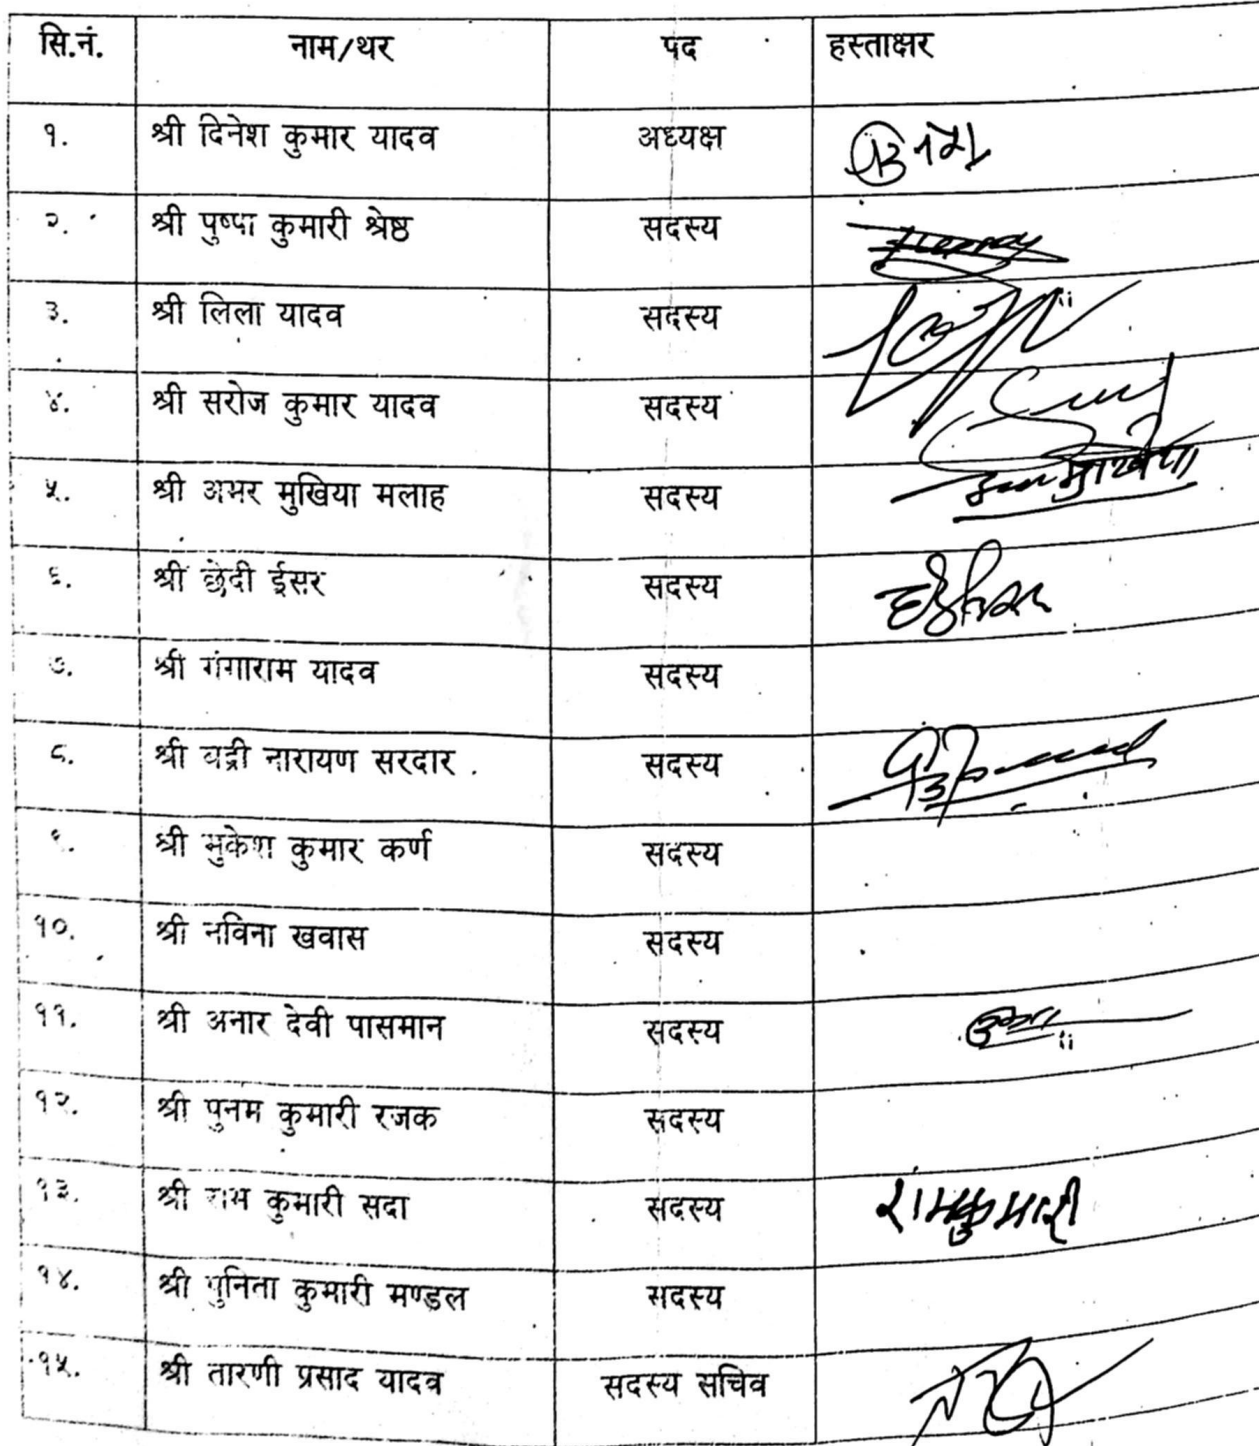 सि.नं. नाम/थर पद हस्ताक्षर
१. श्री दिनेश कुमार यादव अध्यक्ष
२. श्री पुष्पा कुमारी श्रेष्ठ सदस्य
३. श्री लिला यादव सदस्य
४. श्री सरोज कुमार यादव सदस्य
५. श्री अमर मुखिया मलाह सदस्य
६. श्री छेदी ईसर सदस्य
७. श्री गंगाराम यादव सदस्य
८. श्री बद्री नारायण सरदार सदस्य
९. श्री मुकेश कुमार कर्ण सदस्य
१०. श्री नविना खवास सदस्य
११. श्री अनार देवी पासमान सदस्य
१२. श्री पुनम कुमारी रजक सदस्य
१३. श्री राम कुमारी सदा सदस्य रामकुमारी
१४. श्री पुनिता कुमारी मण्डल सदस्य
१५. श्री तारणी प्रसाद यादव सदस्य सचिव